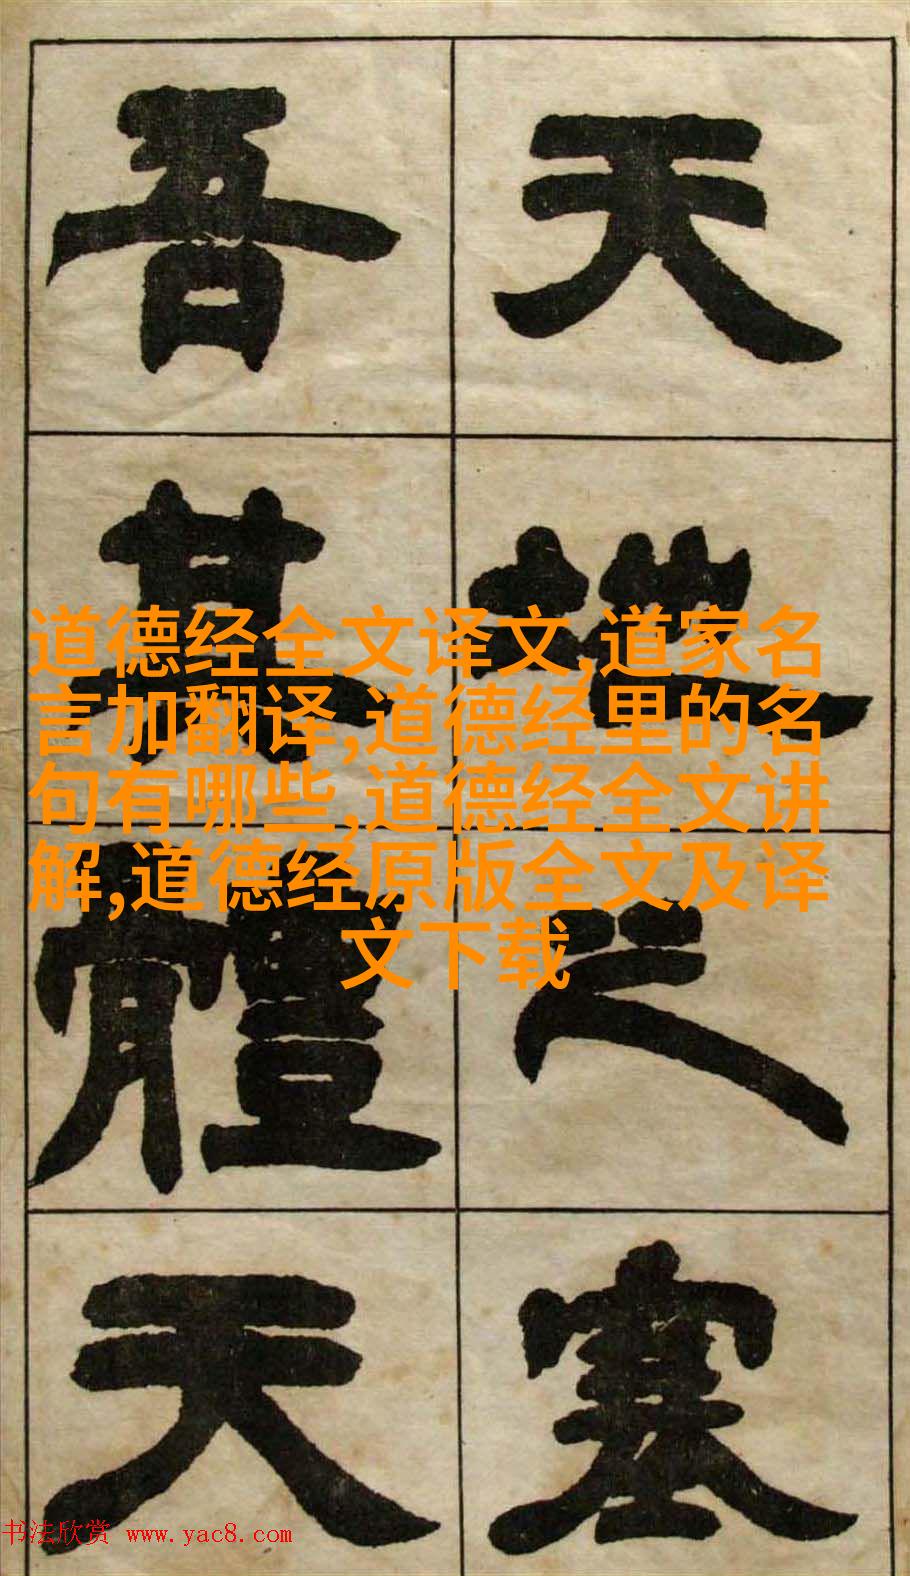 天地之塞
吾其體天
道德经全文译文,道家名
言加翻译,道德经里的名
句有哪些,道德经全文讲
解,道德经原版全文及译
文下载
书法欣赏 www.yac8.com